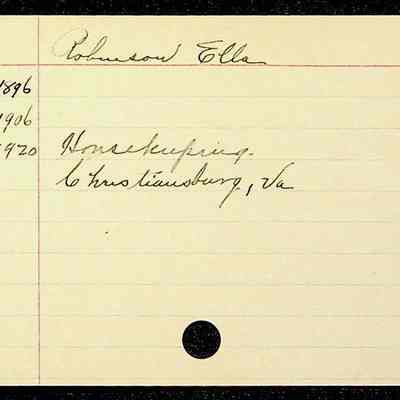 Robinson Ella
1896
1906
1920 Housekeeping.
Christiansburg, Va